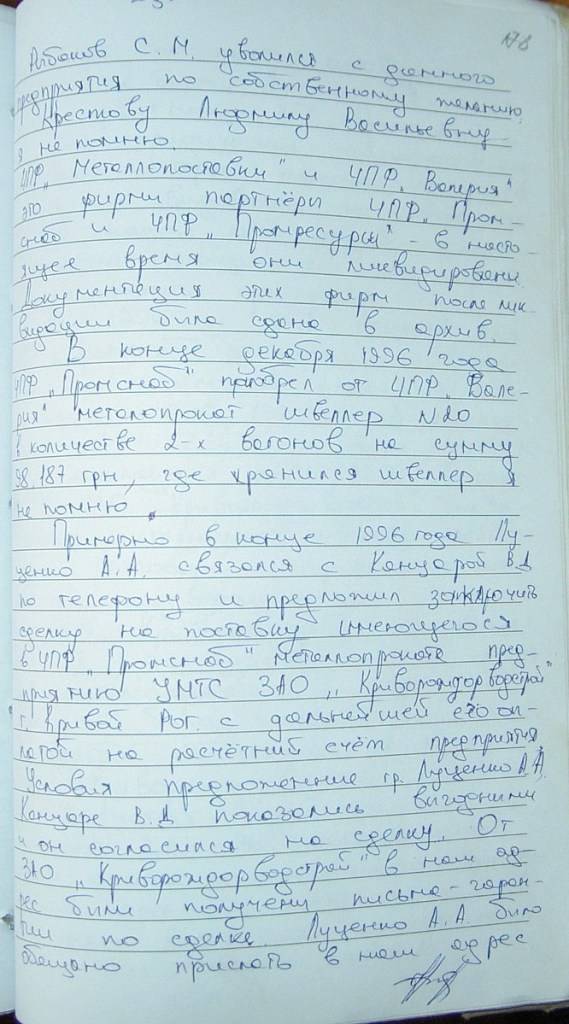 178
Албаков С. М. уволился с данного
предприятия по собственному желанию.
Крестову Людмилу Васильевну
я не помню.
ЧПФ „Металлопоставки" и ЧПФ „Валерия"
это фирмы партнёры ЧПФ „Пром-
снаб и ЧПФ „Промресурсы" - в насто-
ящее время они ликвидированы.
Документация этих фирм после лик
видации была сдана в архив.
В конце декабря 1996 года
ЧПФ „Промснаб" приобрел от ЧПФ „Вале-
рия" металопрокат швеллер N20
в количестве 2-х вагонов на сумму
98.187 грн, где хранился швеллер я
не помню.
Примерно в конце 1996 года Лу-
ценко А.А. связался с Канцарой В.Д
по телефону и предложил заключить
сделку на поставку имеющегося
в ЧПФ „Промснаб" металлопроката пред-
приятию УМТС ЗАО „Криворождорводстрой"
г. Кривой Рог. с дальнейшей его оп-
латой на расчётный счёт предприятия
Условия предложение гр. Луценко А.А.
Канцаре В.Д показались выгодными
и он согласился на сделку. От
ЗАО „Криворождорводстрой" в наш ад-
рес были получены письма-гаран-
тии по сделке. Луценко А.А. было
обещано прислать в наш адрес